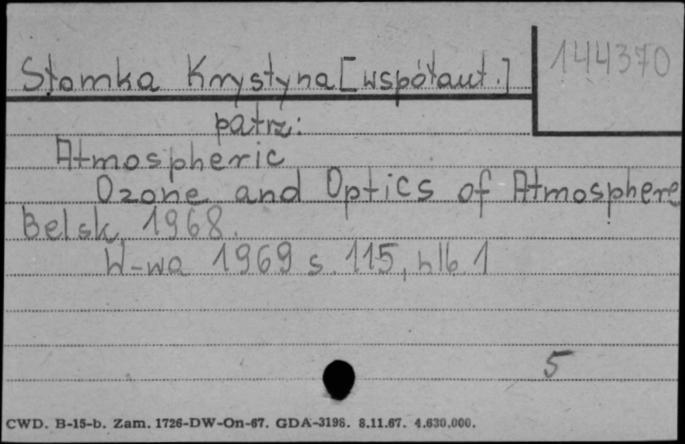 Słomka Krystyna [współaut.]
144370
patrz:
Atmospheric
Ozone and Optics of Atmosphere
Belsk 1968.
W-wa 1969 s. 115, nlb. 1
5
CWD. B-15-b. Zam. 1726-DW-On-67. GDA-3198. 8.11.67. 4.630.000.